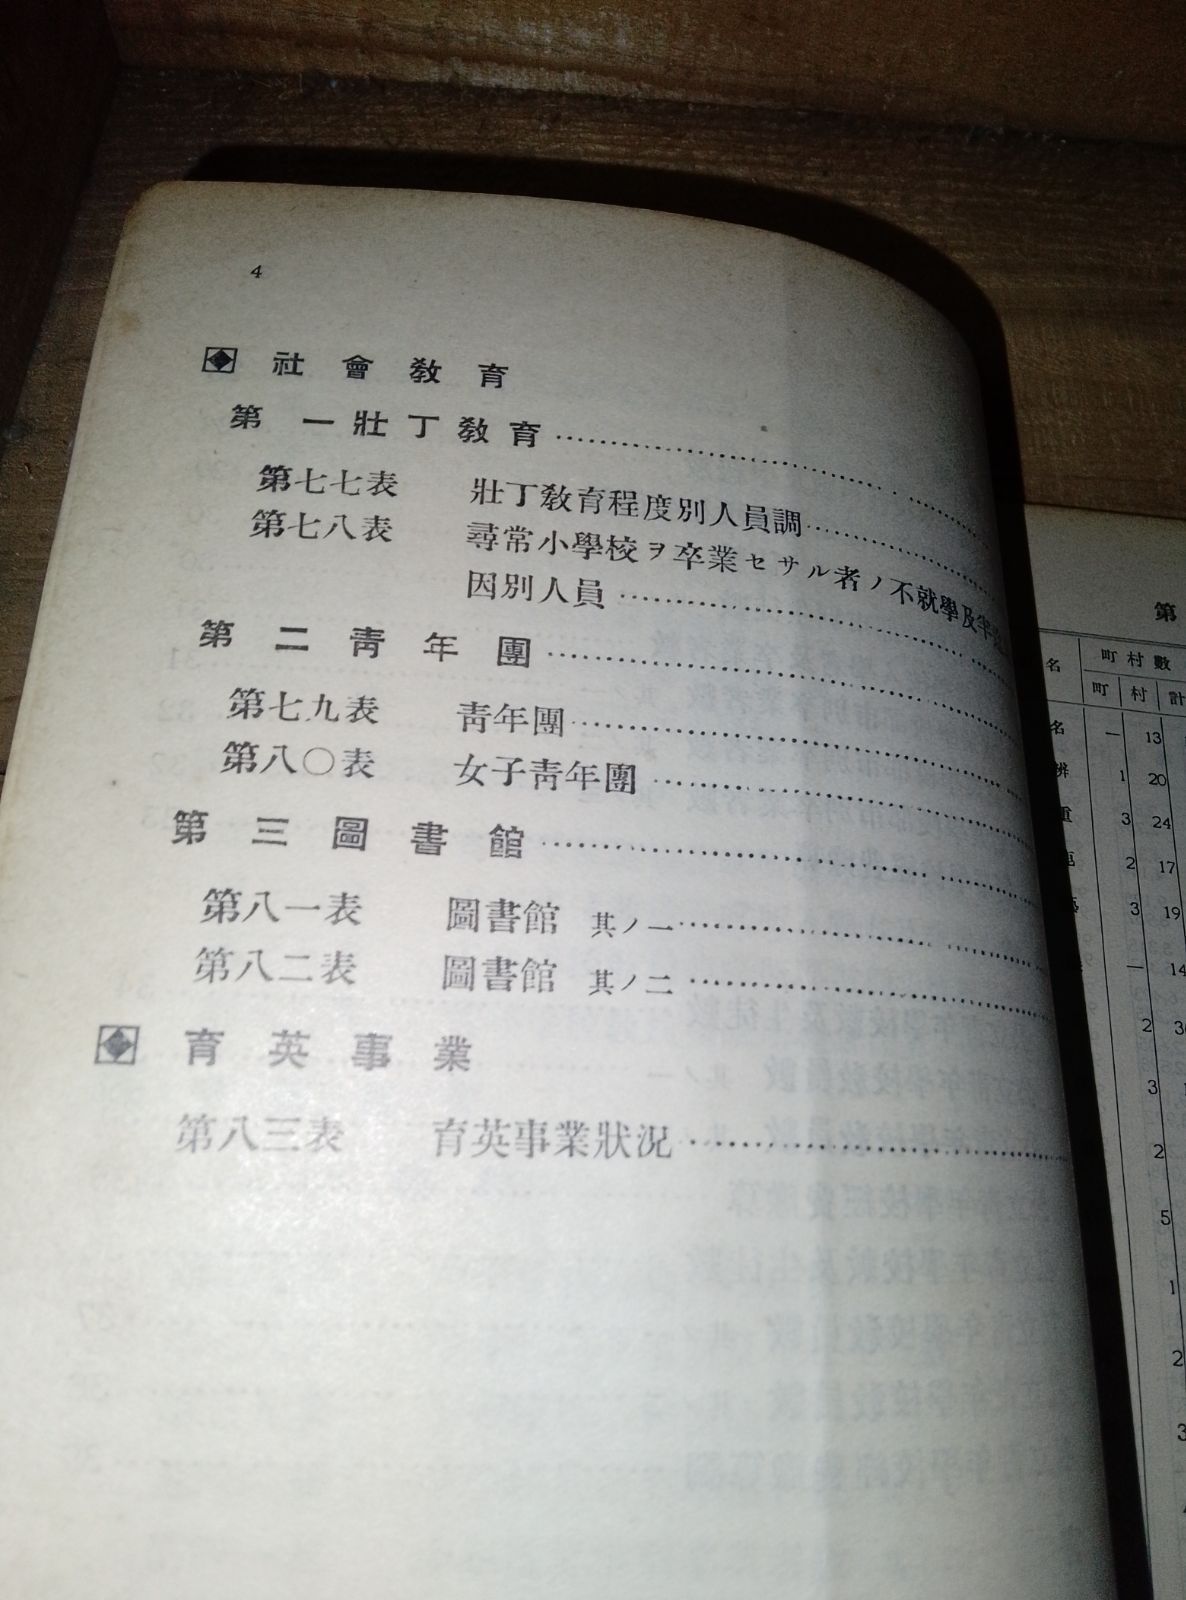 4
社會教育
第一壯丁教育
第七七表 壯丁教育程度別人員調
第七八表 尋常小學校ヲ卒業セサル者ノ不就學及半途
因別人員
第二青年團
第七九表 青年團
第八〇表 女子青年團
第三圖書館
第八一表 圖書館 其ノ一
第八二表 圖書館 其ノ二
育英事業
第八三表 育英事業狀況
第
名 町村數
町 村 計
名 一 13
1 20
3 24
2 17
3 19
一 14
2
3
2
5
1
2